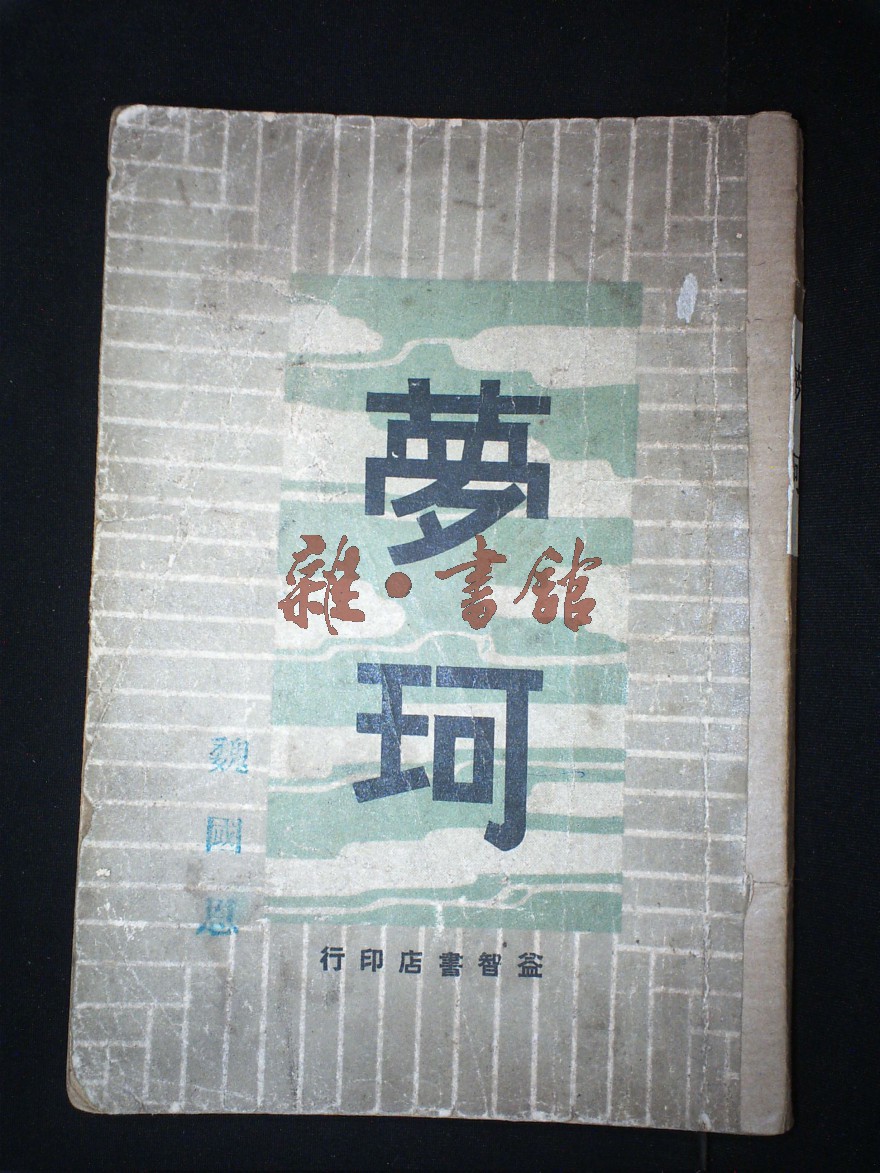 夢珂
雜·書館
魏國恩
益智書店印行